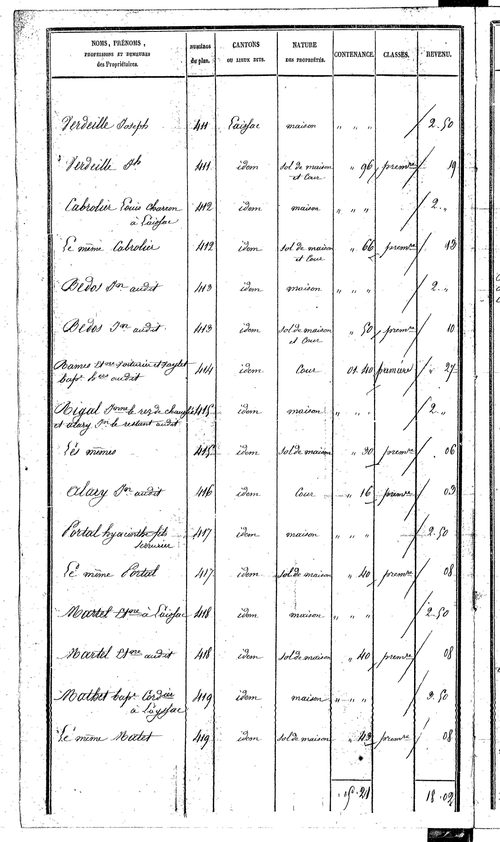 NOMS, PRÉNOMS, PROFESSIONS ET DEMEURES des Propriétaires. | NUMÉROS du plan. | CANTONS OU LIEUX DITS. | NATURE DES PROPRIÉTÉS. | CONTENANCE. | CLASSES. | REVENU.
Verdeille Joseph 411 Laissac maison " " " 2.50
Verdeille Jh 411 idem sol de maison et Cour " 96 premre 19
Cabrolier Louis charron à Laissac 412 idem maison " " " 2. "
Le même Cabrolier 412 idem sol de maison et Cour " 66 premre 13
Bedos Jn audit 413 idem maison " " " 2. "
Bedos Jn audit 413 idem sol de maison et Cour " 50 premre 10
Rames voiturier et
audit 414 idem Cour 01.40 première " 27
Rigal le rez de
et alary Jn le restant audit 415 idem maison " " " 2. "
Les mêmes 415 idem sol de maison " 30 premre 06
Alary Jn audit 416 idem Cour " 16 premre 03
Portal hyacinthe fils
serrurier 417 idem maison " " " 2.50
Le même Portal 417 idem sol de maison " 40 premre 08
Martel à Laissac 418 idem maison " " " 2.50
Martel audit 418 idem sol de maison " 40 premre 08
Mathet bapt Cordier
à Layssac 419 idem maison " " " 2.50
Le même Matet 419 idem sol de maison " 43 premre 08
18.02